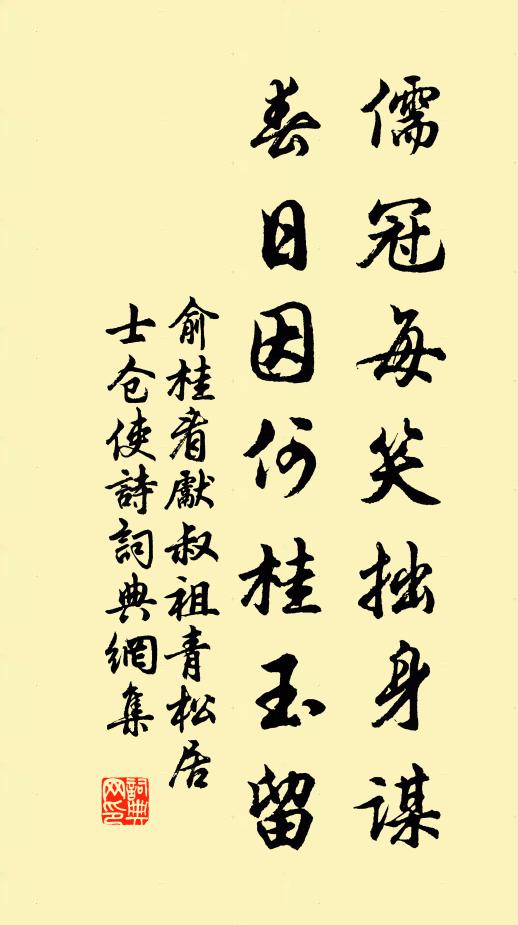 儒冠每笑拙身謀
春日因何桂玉留
俞桂者獻叔祖青松居
士仓使詩詞典網集
詞典
网印